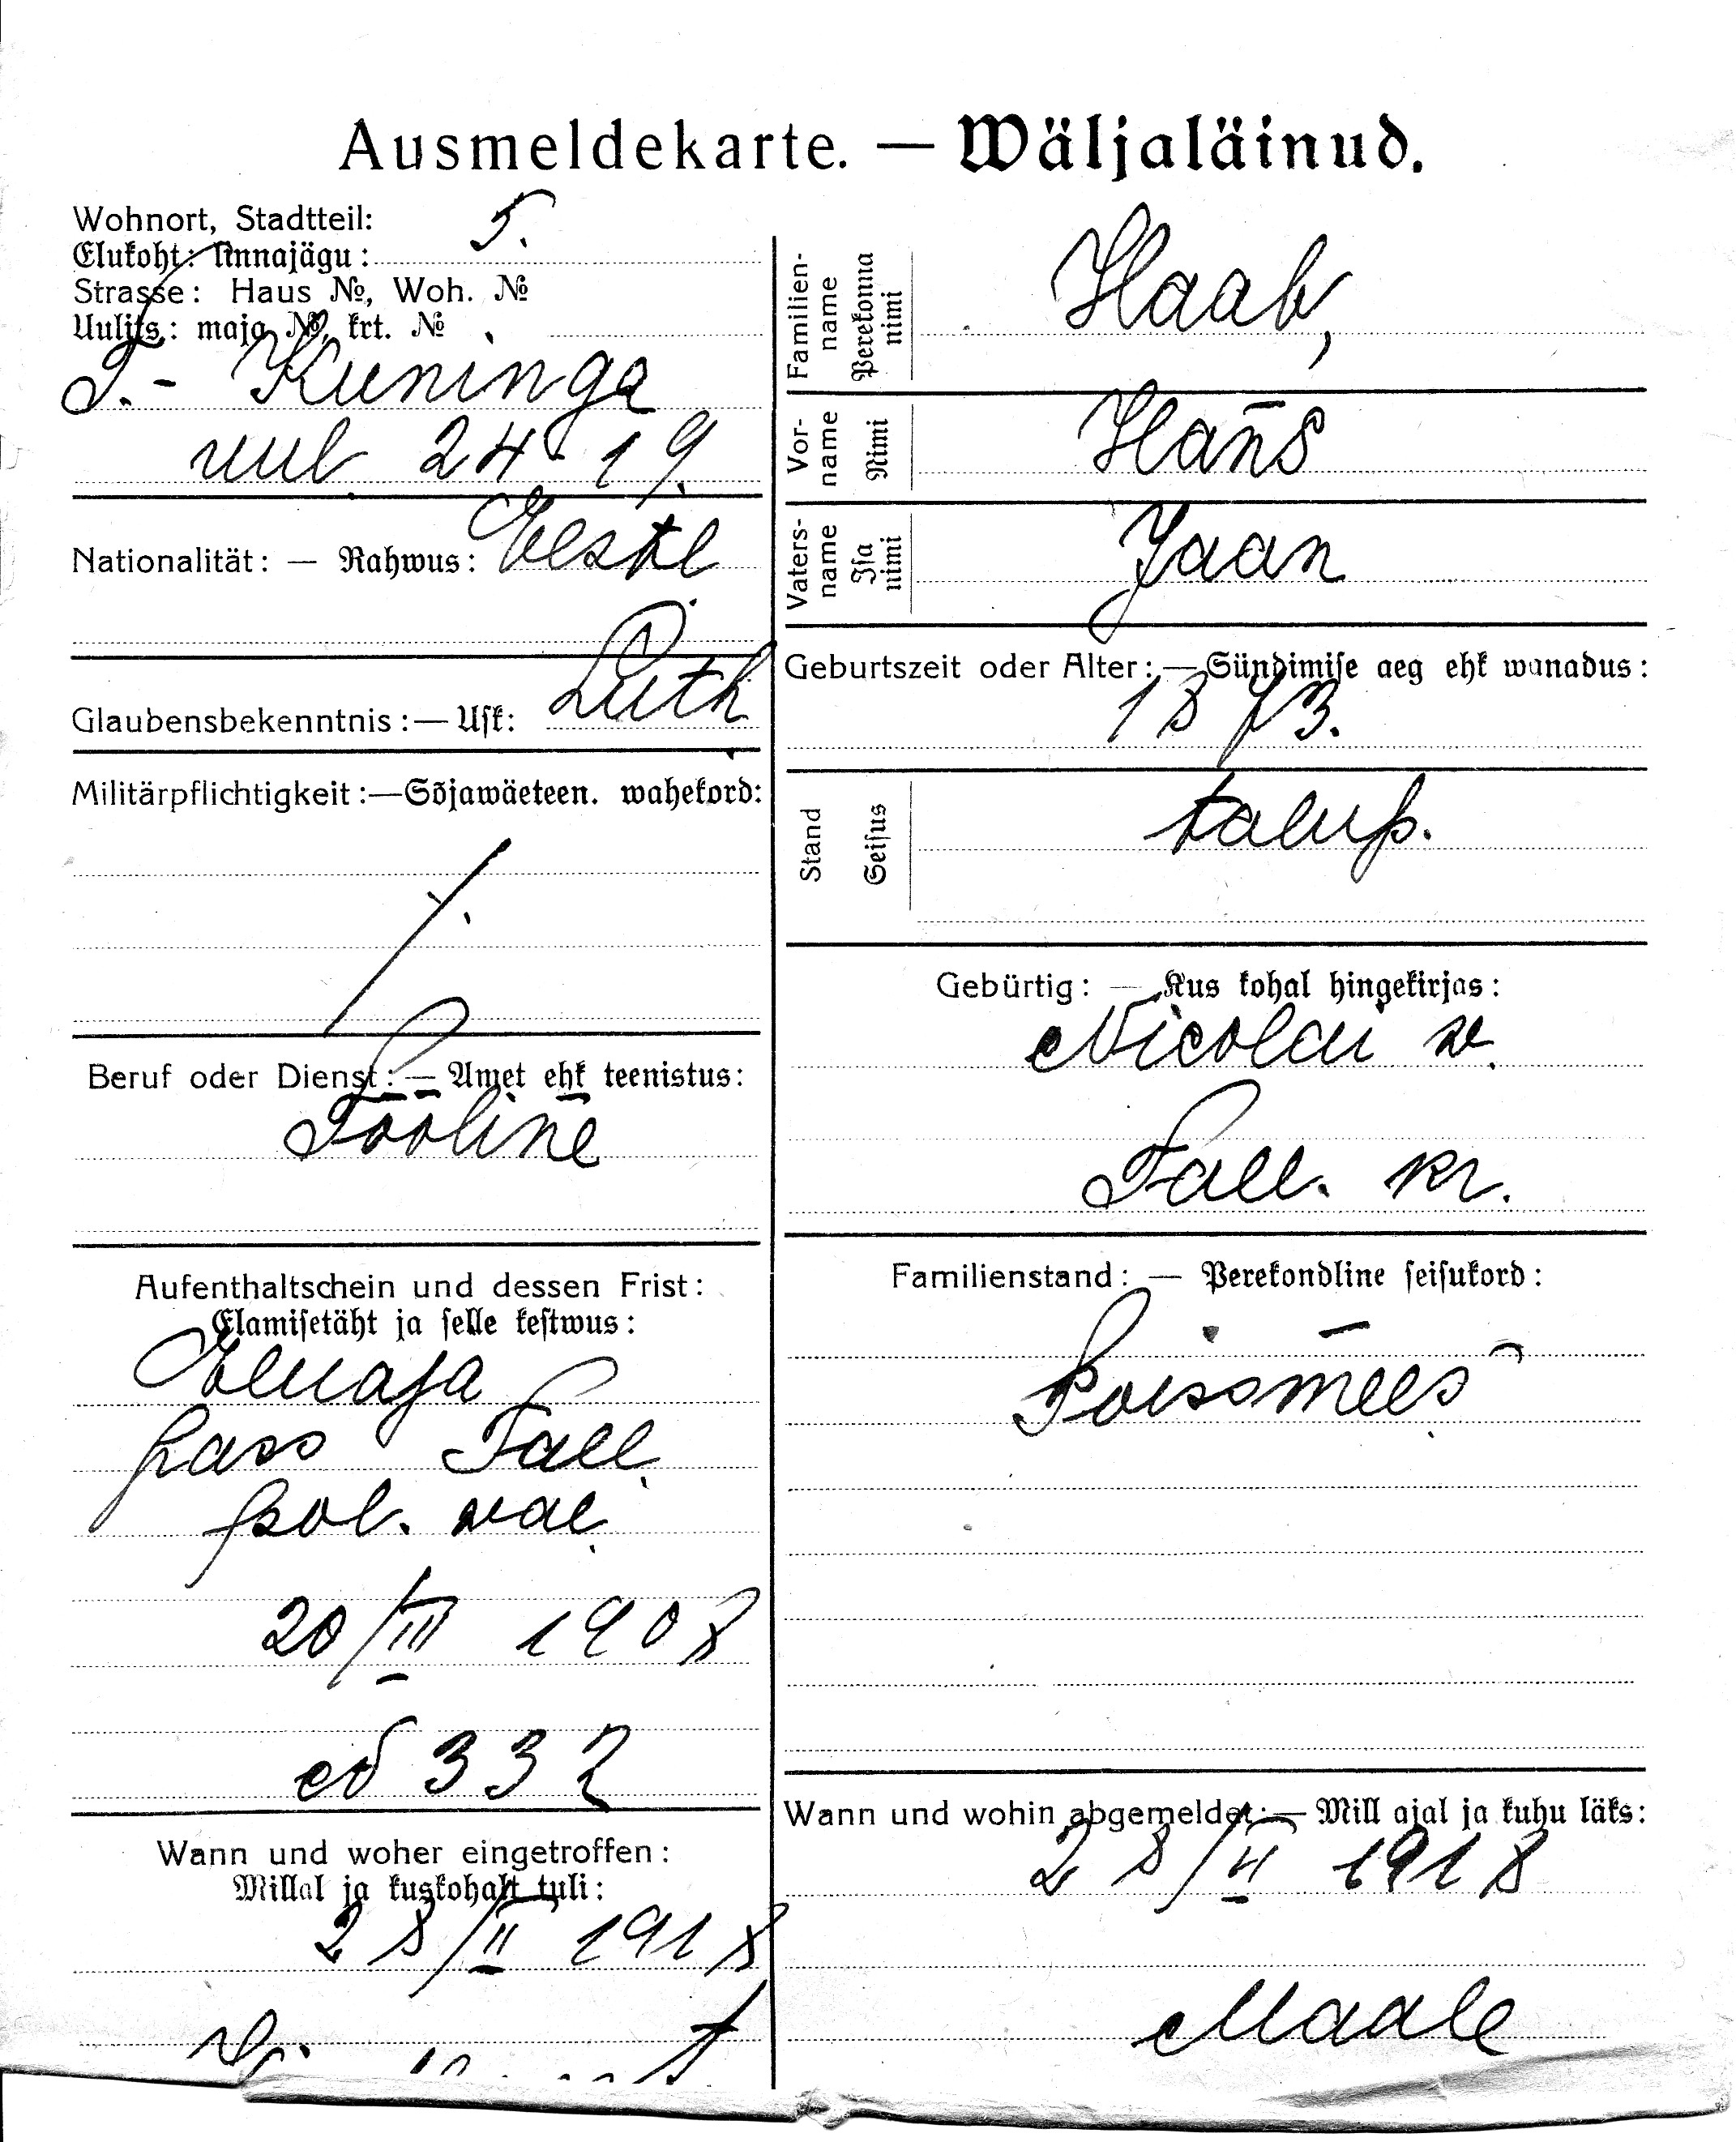 Ausmeldekarte. — Wäljaläinud.
Wohnort, Stadtteil:
Elukoht: linnajägu: 5.
Strasse: Haus №, Woh. №
Uulits: maja №, krt. №
T.- Kuninga
uul. 24-19.
Nationalität: — Rahwus: Eestl.
Glaubensbekenntnis: — Usk: Luth.
Militärpflichtigkeit: — Sõjawäeteen. wahekord:
Beruf oder Dienst: — Amet ehk teenistus:
Tööline
Aufenthaltschein und dessen Frist:
Elamisetäht ja selle kestwus:
Eluaja
pass Tall.
pol. wal.
20/III 1908
№ 332
Wann und woher eingetroffen:
Millal ja kuskohalt tuli:
28/II 1918
Familien-
name
Perekonna
nimi
Haab,
Vor-
name
Nimi
Hans
Vaters-
name
Isa
nimi
Jaan
Geburtszeit oder Alter: — Sündimise aeg ehk wanadus:
1873.
Stand
Seisus
talup.
Gebürtig: — Kus kohal hingekirjas:
Nicolai w.
Tall. kr.
Familienstand: — Perekondline seisukord:
Poissmees
Wann und wohin abgemeldet: — Mill ajal ja kuhu läks:
28/VI 1918
Maale